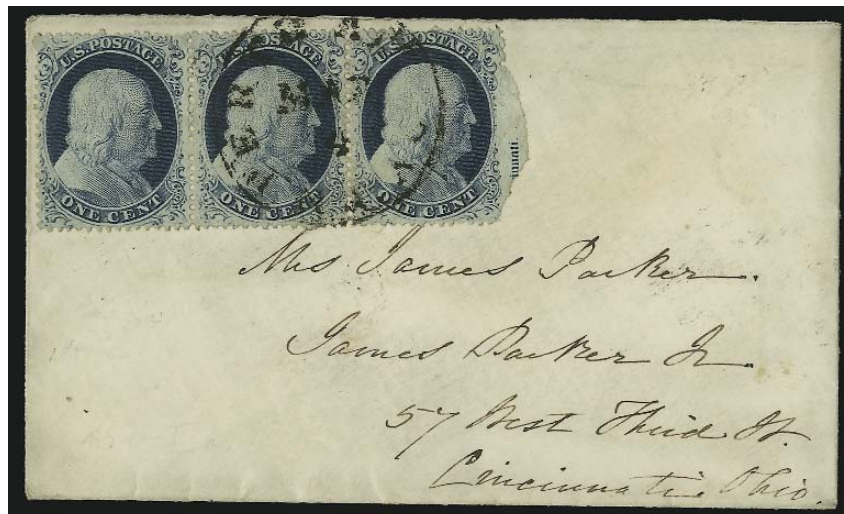 U.S. POSTAGE
U.S. POSTAGE
U.S. POSTAGE
ONE CENT
ONE CENT
ONE CENT
4
Mrs James Parker.
James Parker Jr.
57 West Third St.
Cincinnati Ohio.